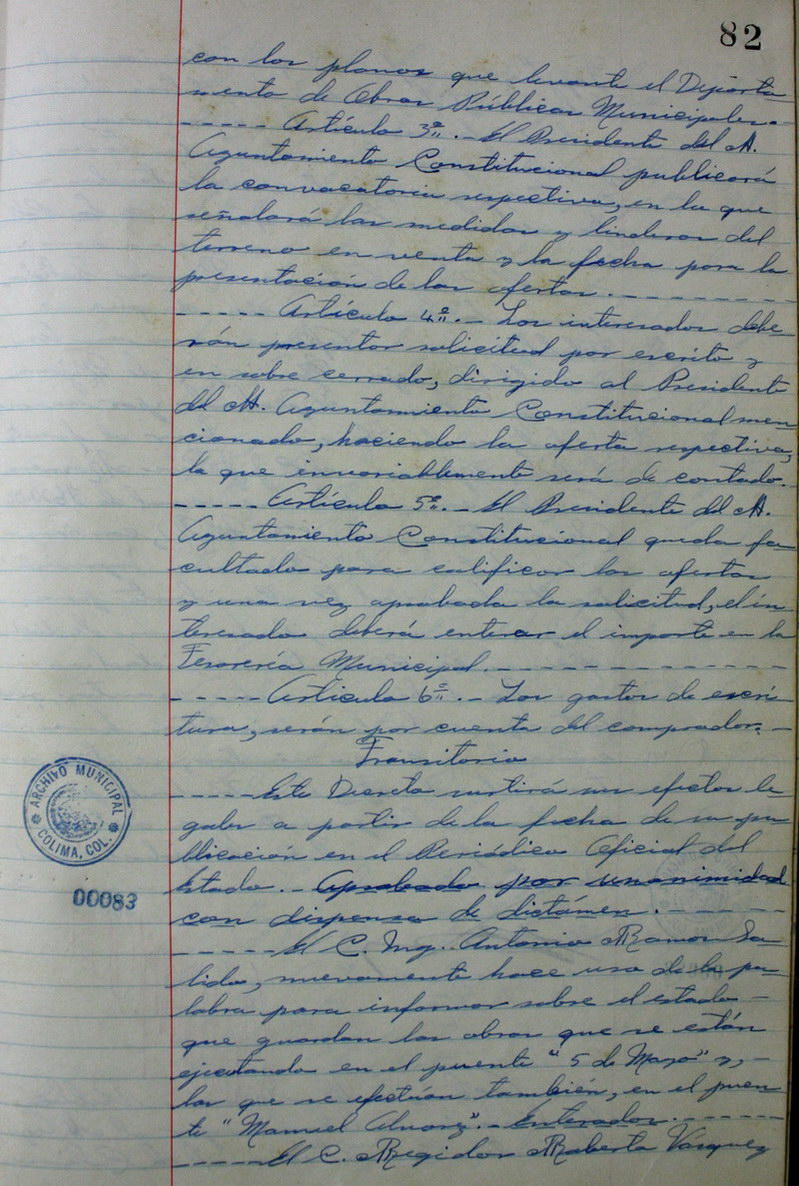 82
con los planos que levante el Departa-
mento de Obras Públicas Municipales.-
----- Artículo 3o.- El Presidente del H.
Ayuntamiento Constitucional publicará
la convocatoria respectiva, en la que
señalará las medidas y linderos del
terreno en venta y la fecha para la
presentación de las ofertas.---------
----- Artículo 4o.- Los interesados debe-
rán presentar solicitud por escrito y
en sobre cerrado, dirigido al Presidente
del H. Ayuntamiento Constitucional men
cionado, haciendo la oferta respectiva,
la que invariablemente será de contado.-
----- Artículo 5o.- El Presidente del H.
Ayuntamiento Constitucional queda fa-
cultado para calificar las ofertas
y una vez aprobada la solicitud, el in-
teresado deberá enterar el importe en la
Tesorería Municipal.-----------
----- Artículo 6o.- Los gastos de escri-
tura, serán por cuenta del comprador.-
Transitorio
----- Este Decreto surtirá sus efectos le-
gales a partir de la fecha de su pu-
blicación en el Periódico Oficial del
Estado.- Aprobado por unanimidad
con dispensa de dictámen.------
----- El C. Ing. Antonio Ramos Sa-
lido, nuevamente hace uso de la pa-
labra para informar sobre el estado -
que guardan las obras que se están
ejecutando en el puente "5 de Mayo" y, -
las que se efectúan también, en el puen-
te "Manuel Alvarez".- Enterados.------
----- El C. Regidor Roberto Vázquez
ARCHIVO MUNICIPAL
COLIMA, COL.
00083